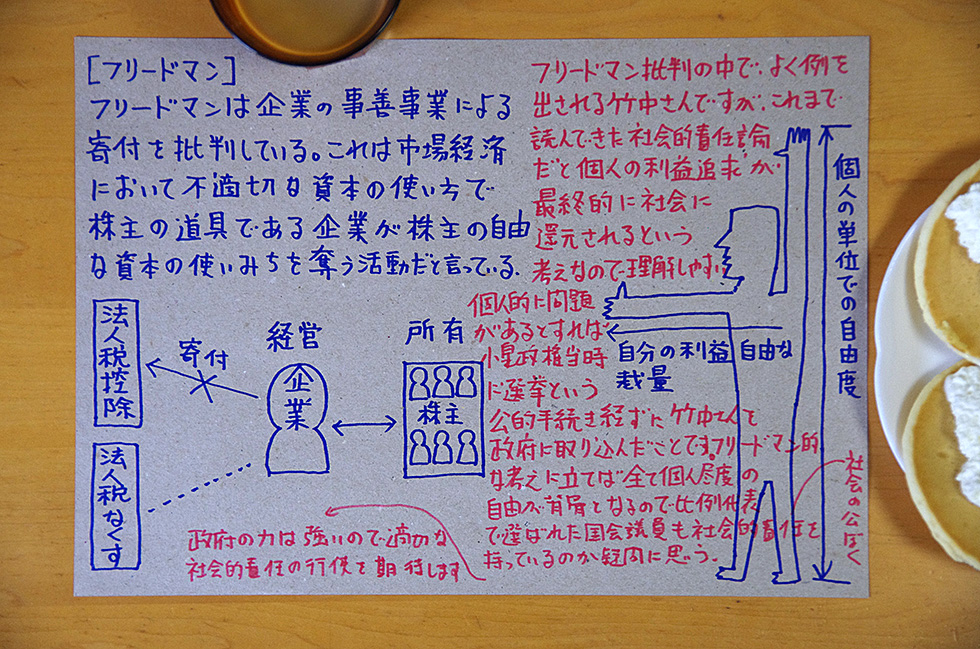 [フリードマン]
フリードマンは企業の事善事業による
寄付を批判している。これは市場経済
において不適切な資本の使い方で
株主の道具である企業が株主の自由
な資本の使いみちを奪う活動だと言っている.
法人税控除
寄付
経営
企業
所有
株主
法人税なくす
フリードマン批判の中で、よく例を
出される竹中さんですが、これまで
読んできた社会的責任論
だと個人の利益追求が
最終的に社会に
還元されるという
考えなので理解しやすい
個人的に問題
があるとすれば
小泉政権当時
に選挙という
公的手続き経ずに竹中さんを
政府に取り込んだことです。フリードマン的
な考えに立てば全て個人尺度の
自由が背骨となるので比例代表
で選ばれた国会議員も社会的責任を
持っているのか疑問に思う.
自分の利益 自由な
裁量
個人の単位での自由度
社会の公ぼく
政府の力は強いので適切な
社会的責任の行使を期待します